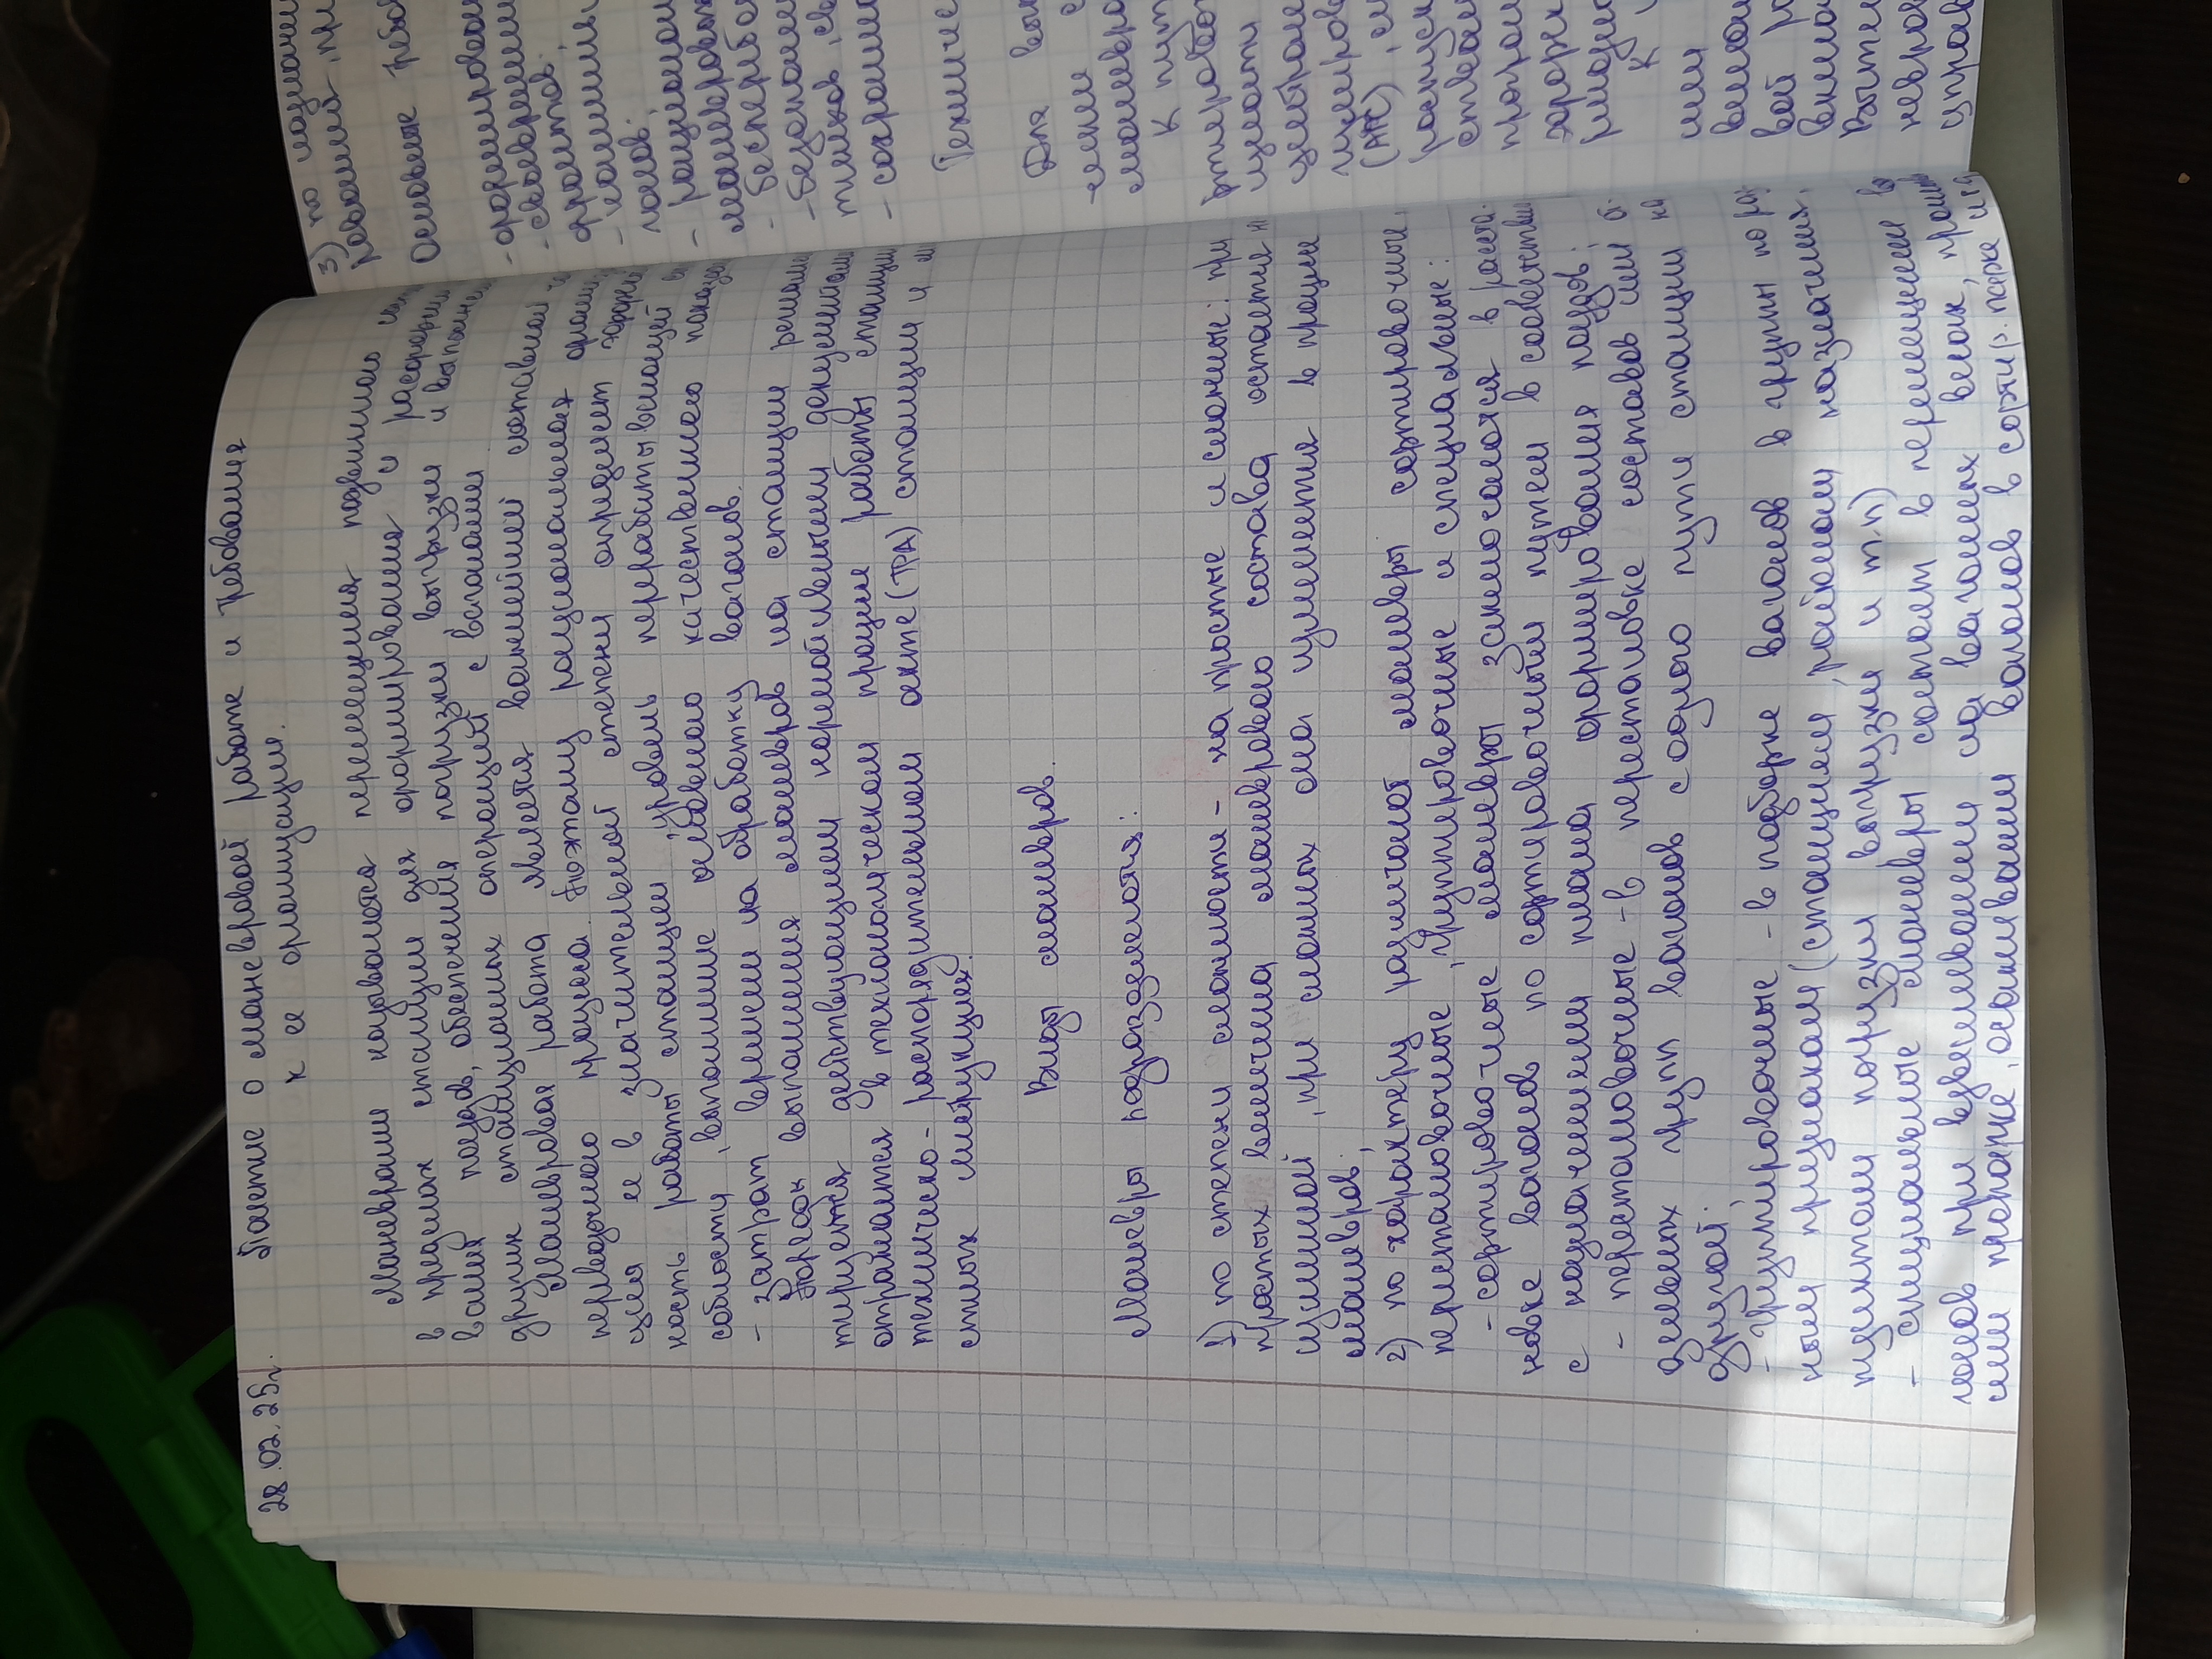 28.02.25г.
Понятие о маневровой работе и требования
к ее организации.
Маневрами называются перемещения подвижного
в пределах станции для формирования и расформи
вания поездов, обеспечения погрузки выгрузки и выполнен
других станционных операций с вагонами
Маневровая работа является важнейшей составной ч
перевозочного процесса. Поэтому рациональная органи
ция ее в значительной степени определяет эффек
ность работы станции, уровень перерабатывающей
собности, выполнение основного качественного показа
- затрат времени на обработку вагонов.
Порядок выполнения маневров на станции реглам
тируется действующими нормативными документам
отражается в технологическом процессе работы станции
техническо-распорядительном акте (ТРА) станции и
стных инструкциях.
Виды маневров.
Маневры подразделяются:
1) по степени сложности - на простые и сложные: при
простых величина маневрового состава остается
изменной, при сложных она изменяется в процессе
маневров;
2) по характеру различают маневры сортировочные,
перестановочные, группировочные и специальные:
- сортировочные маневры заключаются в расста-
новке вагонов по сортировочным путем в соответстви
с назначениями плана формирования поездов;
- перестановочные - в перестановке составов или
дельных групп вагонов с одного пути станции на
другой;
- группировочные - в подборке вагонов в группы по раз
ным признакам (станциям, районам назначения,
пунктам погрузки выгрузки и т.п)
- специальные маневры состоят в перемещении ва
гонов при взвешивании на вагонных весах, промы
или пропарке, осаживании вагонов в сортир. парке и
3) по
Основные требо
- формирован
- своевременн
- рационал
маневровы
- беспербо
тиков, св
- сохранно
Техниче
Для вы
маневро
К пут
(АРС), си
горке
К